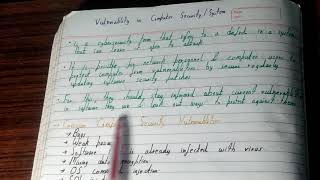 Vulnerability in Computer Security/System
• Is a cybersecurity term that refers to a defect in a system
that can leave it open to attack.
• It is possible for network personnel & computer users to
protect computers from vulnerabilities by regularly
updating software security patches.
• For this, they should stay informed about current vulnerabilities in
software they use & look out ways to protect against them.
Common Computer Security Vulnerabilities
→ Bugs
→ Weak
→ Software is already infected with virus
→ Missing data encryption
→ OS command injection
→ SQL